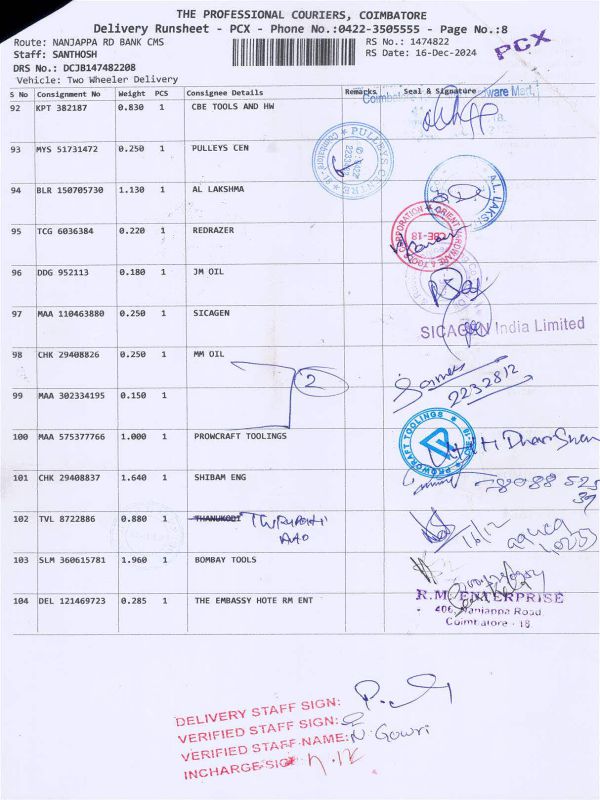 THE PROFESSIONAL COURIERS, COIMBATORE
Delivery Runsheet - PCX - Phone No.:0422-3505555 - Page No.:8
Route: NANJAPPA RD BANK CMS RS No.: 1474822
Staff: SANTHOSH RS Date: 16-Dec-2024
PCX
DRS No.: DCJB147482208
Vehicle: Two Wheeler Delivery
S No Consignment No Weight PCS Consignee Details Remarks Seal & Signature
92 KPT 382187 0.830 1 CBE TOOLS AND HW
93 MYS 51731472 0.250 1 PULLEYS CEN
PULLEYS CENTRE
94 BLR 150705730 1.130 1 AL LAKSHMA
95 TCG 6036384 0.220 1 REDRAZER
ORIENT HARDWARE & TOOLS CORPORATION
CBE-18
96 DDG 952113 0.180 1 JM OIL
97 MAA 110463880 0.250 1 SICAGEN
SICAGEN India Limited
98 CHK 29408826 0.250 1 MM OIL
2
2232812
99 MAA 302334195 0.150 1
100 MAA 575377766 1.000 1 PROWCRAFT TOOLINGS
PROWCRAFT TOOLINGS
101 CHK 29408837 1.640 1 SHIBAM ENG
102 TVL 8722886 0.880 1 THANUKODI
16/12
103 SLM 360615781 1.960 1 BOMBAY TOOLS
104 DEL 121469723 0.285 1 THE EMBASSY HOTE RM ENT
R.M. ENTERPRISE
406, Nanjappa Road
Coimbatore - 18
DELIVERY STAFF SIGN:
VERIFIED STAFF SIGN:
VERIFIED STAFF NAME: N. Gowri
INCHARGE SIGN